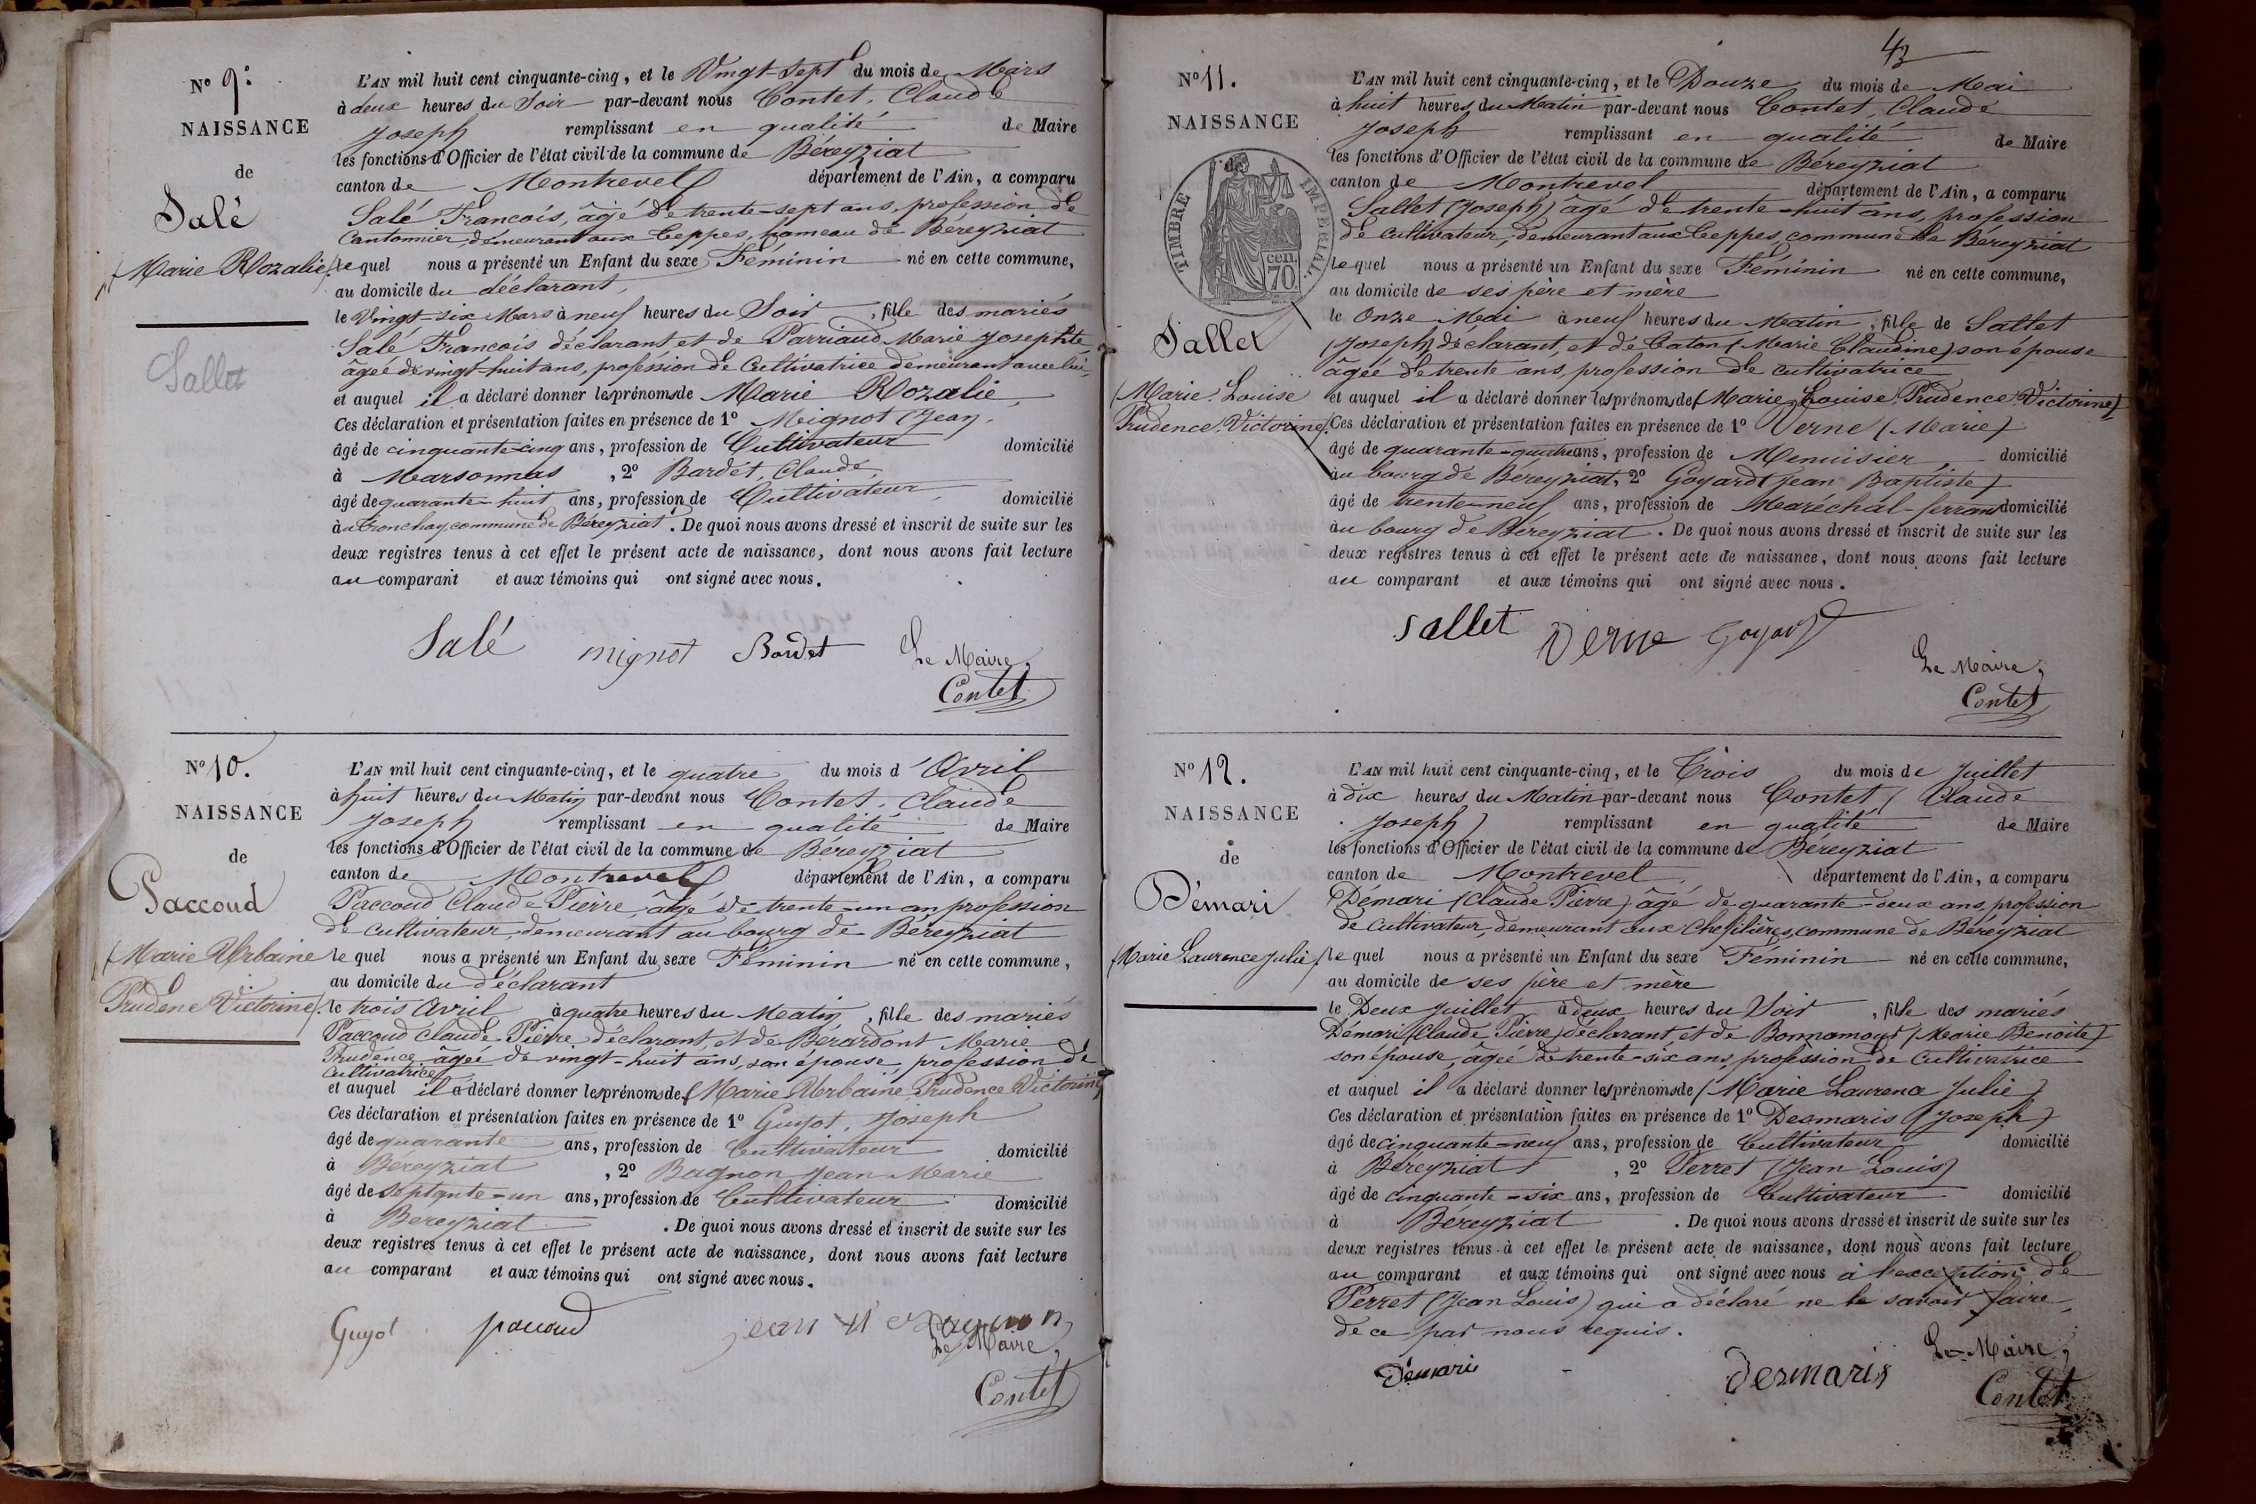 N° 9.
NAISSANCE
de
Salé
(Marie Rozalie)
Sallet
L'AN mil huit cent cinquante-cinq, et le Vingt-Sept du mois de Mars
à deux heures du Soir par-devant nous Contet, Claude
Joseph remplissant en qualité de Maire
les fonctions d'Officier de l'état civil de la commune de Béreyziat
canton de Montrevel département de l'Ain, a comparu
Salé Francois, âgé de trente-sept ans, profession de
Cantonnier, demeurant aux Ceppes, hameau de Béreyziat
lequel nous a présenté un Enfant du sexe Féminin né en cette commune,
au domicile du déclarant,
le Vingt-six Mars à neuf heures du Soir, fille des mariés
Salé Francois déclarant et de Parriaud Marie Josephte
âgée de vingt-huit ans, profession de Cultivatrice demeurant avec lui,
et auquel il a déclaré donner les prénoms de Marie Rozalie,
Ces déclaration et présentation faites en présence de 1° Meignot (Jean),
âgé de cinquante-cinq ans, profession de Cultivateur domicilié
à Marsonnas, 2° Bardet, Claude,
âgé de quarante-huit ans, profession de Cultivateur, domicilié
à au Tronchay commune de Béreyziat. De quoi nous avons dressé et inscrit de suite sur les
deux registres tenus à cet effet le présent acte de naissance, dont nous avons fait lecture
au comparant et aux témoins qui ont signé avec nous.
Salé mignot Bardet Le Maire,
Contet
N° 10.
NAISSANCE
de
Paccoud
(Marie Urbaine
Prudene Victorine)
L'AN mil huit cent cinquante-cinq, et le quatre du mois d'Avril
à huit heures du Matin par-devant nous Contet, Claude
Joseph remplissant en qualité de Maire
les fonctions d'Officier de l'état civil de la commune de Béreyziat
canton de Montrevel département de l'Ain, a comparu
Paccoud Claude Pierre, âgé de trente-un an, profession
de cultivateur, demeurant au bourg de Béreyziat
lequel nous a présenté un Enfant du sexe Féminin né en cette commune,
au domicile du déclarant
le trois Avril à quatre heures du Matin, fille des mariés
Paccoud Claude Pierre déclarant et de Bérardont Marie
Prudence âgée de vingt-huit ans, son épouse, profession de
Cultivatrice
et auquel il a déclaré donner les prénoms de (Marie Urbaine Prudence Victorine)
Ces déclaration et présentation faites en présence de 1° Guyot, Joseph
âgé de quarante ans, profession de Cultivateur domicilié
à Béreyziat, 2° Bagnon Jean Marie
âgé de septante-un ans, profession de Cultivateur domicilié
à Béreyziat. De quoi nous avons dressé et inscrit de suite sur les
deux registres tenus à cet effet le présent acte de naissance, dont nous avons fait lecture
au comparant et aux témoins qui ont signé avec nous.
Guyot pacoud jean
Le Maire,
Contet
N° 11.
NAISSANCE
TIMBRE IMPERIAL.
70 cen.
Sallet
(Marie Louise
Prudence Victorine)
L'AN mil huit cent cinquante-cinq, et le Douze du mois de Mai
à huit heures du Matin par-devant nous Contet, Claude
Joseph remplissant en qualité de Maire
les fonctions d'Officier de l'état civil de la commune de Béreyziat
canton de Montrevel département de l'Ain, a comparu
Sallet (Joseph) âgé de trente-huit ans, profession
de cultivateur, demeurant aux Ceppes, commune de Béreyziat
lequel nous a présenté un Enfant du sexe Féminin né en cette commune,
au domicile de ses père et mère
le Onze Mai à neuf heures du Matin, fille de Sallet
(Joseph) déclarant, et de Caton (Marie Claudine) son épouse
âgée de trente ans, profession de cultivatrice
et auquel il a déclaré donner les prénoms de (Marie Louise Prudence Victorine)
Ces déclaration et présentation faites en présence de 1° Verne (Marie)
âgé de quarante-quatre ans, profession de Menuisier domicilié
au bourg de Béreyziat, 2° Goyard (Jean Baptiste)
âgé de trente-neuf ans, profession de Maréchal-ferrant domicilié
au bourg de Béreyziat. De quoi nous avons dressé et inscrit de suite sur les
deux registres tenus à cet effet le présent acte de naissance, dont nous avons fait lecture
au comparant et aux témoins qui ont signé avec nous.
Sallet Verne Goyard
Le Maire,
Contet
N° 12.
NAISSANCE
de
Démari
(Marie Laurence Julie)
L'AN mil huit cent cinquante-cinq, et le Trois du mois de Juillet
à dix heures du Matin par-devant nous Contet (Claude
Joseph) remplissant en qualité de Maire
les fonctions d'Officier de l'état civil de la commune de Béreyziat
canton de Montrevel département de l'Ain, a comparu
Démari (Claude Pierre) âgé de quarante-deux ans, profession
de Cultivateur, demeurant aux Chefilières, commune de Béreyziat
lequel nous a présenté un Enfant du sexe Féminin né en cette commune,
au domicile de ses père et mère
le Deux Juillet à deux heures du Soir, fille des mariés
Démari (Claude Pierre) déclarant et de Bonnamour (Marie Benoite)
son épouse, âgée de trente-six ans, profession de Cultivatrice
et auquel il a déclaré donner les prénoms de (Marie Laurence Julie)
Ces déclaration et présentation faites en présence de 1° Desmaris (Joseph)
âgé de cinquante-neuf ans, profession de Cultivateur domicilié
à Béreyziat, 2° Perret (Jean Louis)
âgé de cinquante-six ans, profession de Cultivateur domicilié
à Béreyziat. De quoi nous avons dressé et inscrit de suite sur les
deux registres tenus à cet effet le présent acte de naissance, dont nous avons fait lecture
au comparant et aux témoins qui ont signé avec nous à l'exception de
Perret (Jean Louis) qui a déclaré ne le savoir faire,
de ce par nous requis.
Démari Desmaris Le Maire,
Contet